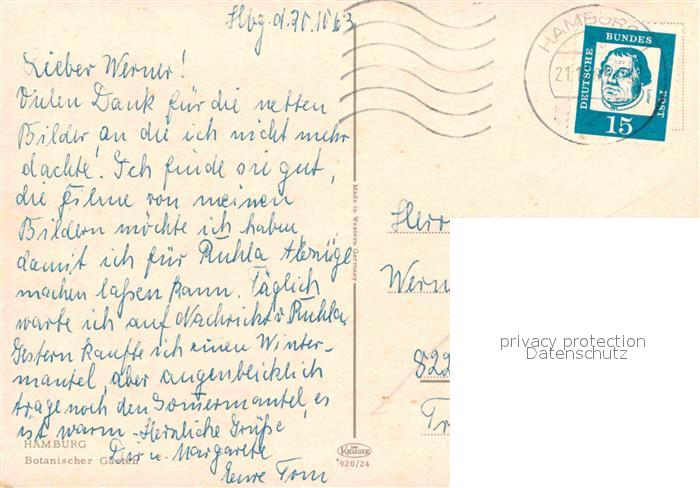 Hbg. d. 20.10.63
Lieber Werner!
Vielen Dank für die netten
Bilder, an die ich nicht mehr
dachte! Ich finde sie gut,
die Filme von meinen
Bildern möchte ich haben,
damit ich für Ruhla Abzüge
machen laßen kann. Täglich
warte ich auf Nachricht v. Ruhla.
Gestern kaufte ich einen Winter-
mantel, aber augenblicklich
trage noch den Sommermantel, es
ist warm. Herzliche Grüße
Dir u. Margarete
Eure Tom
HAMBURG
Botanischer Garten
Made in Western Germany
KRÜGER
920/24
HAMBURG
21.1
DEUTSCHE BUNDESPOST
Luther
15
Herr
Wern
822
Tr
privacy protection
Datenschutz